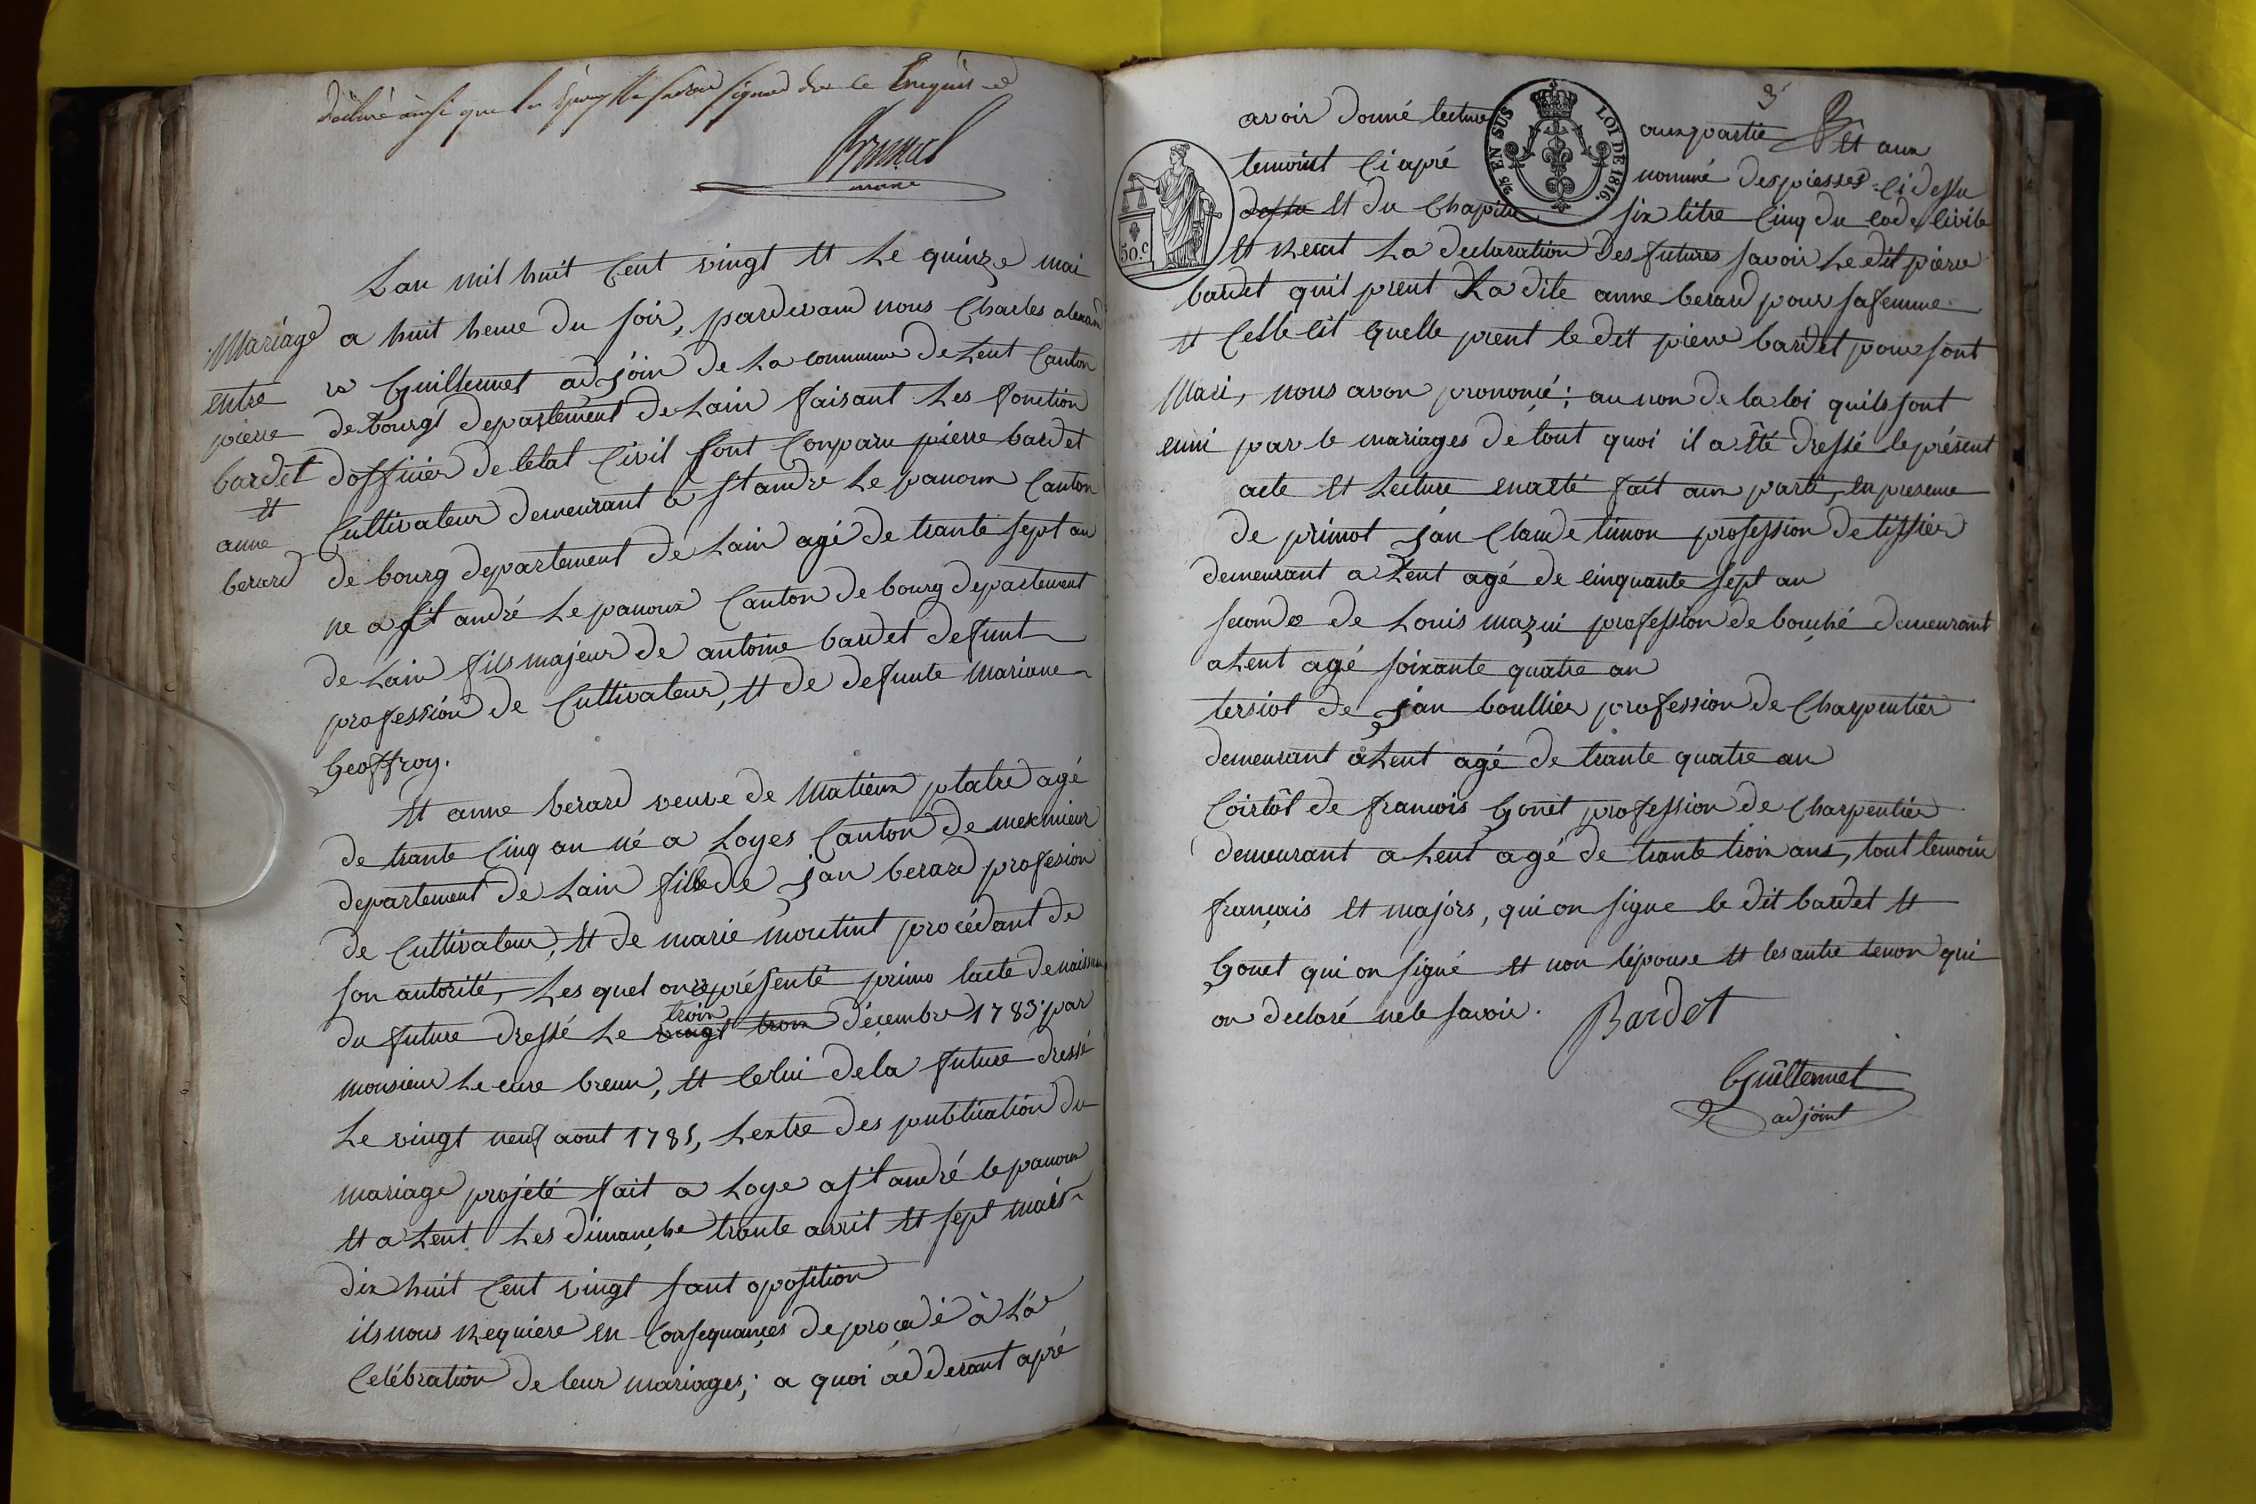 déclaré ainsi que la Epouse ne savoir signer de ce Enquis
Brunel
maire
Mariage
entre
pierre
bardet
et
anne
berard
Lan mil huit Cent vingt et Le quinze mai
a huit heure du soir, pardevand nous Charles alexand
re Guillermet adjoin de La commune de Lent Canton
de bourgt departement de Lain faisant Les fonction
dofficier de letat Civil sont Comparu pierre bardet
Cultivateur demeurant a st andre Le panoux Canton
de bourg departement de Lain agé de trante sept an
ne a st andré Le panoux Canton de bourg departement
de Lain fils majeur de antoine bardet defunt
profession de Cultivateur, et de defunte Mariane
Geoffroy.
et anne berard veuve de Matieux platre agé
de trante Cinq an né a Loyes Canton de meximieux
departement de Lain fille de jan berard profesion
de Cultivateur, et de marie moutint procédant de
son autorité, Les quel on représenté primo lacte de naissan
du future dressé Le vingt trois troix décembre 1783 par
monsieur Le cure breun, et Celui de la future dressé
Le vingt neuf aout 1785, Lextre des publication du
mariage projeté fait a Loye a st andré le panoux
et a Lent Les dimanche trante avril et sept mais
dix huit Cent vingt sant oposition
ils nous Requiere en Consequances de procedé à La
Celébration de leur mariages; a quoi addérant apré
3
avoir donné lecture aux partie et aux
temoint Ci apré nommé des piesses Ci dessu
dessu et du Chapitre six titre Cinq du code Civile
et Recut La declaration des futures savoir Le dit piere
bardet quil prent La dite anne berard pour sa femme
et Celle Cit quelle prent le dit piere bardet pour sont
Mari, nous avon prononcé; au non de la loi quils sont
unni par le mariages de tout quoi il a été dressé le présent
acte et Lecture en a eté fait aux parti, en presence
de primot jan Claude timon profession de tissier
demeurant a Lent agé de cinquante sept an
seconde de Louis mazui profession de bouché demeurant
a Lent agé soixante quatre an
tersiot de jan boullier profession de Charpentier
demeurant a Lent agé de trante quatre an
Coirtôt de francois Gonet profession de Charpentier
demeurant a Lent agé de trante troix ans, tout temoin
français et majors, qui on signe le dit bardet et
Gonet qui on signé et non lépouse et les autre temon qui
on declaré ne le savoir.
Bardet
Guillermet
adjoint
2/5 EN SUS
LOI DE 1816.
50.c